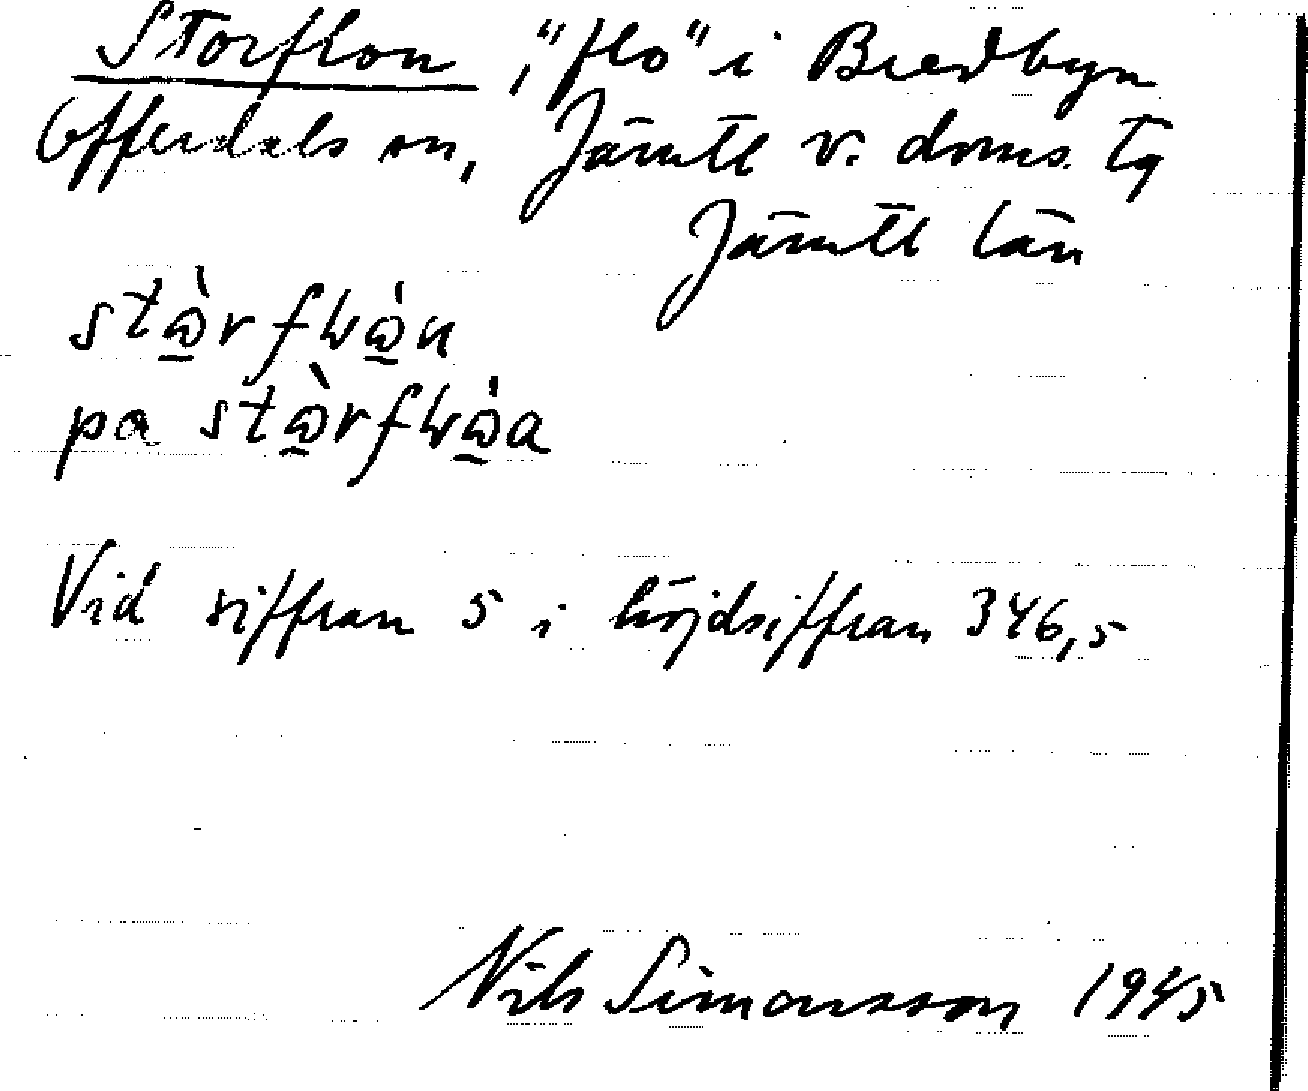 Storflon, "flo" i Bredbyn
Offerdals sn, Jämtl v. doms. tg
Jämtl län
pa
Vid siffran 5 i höjdsiffran 346,5
Nils Simonsson 1945